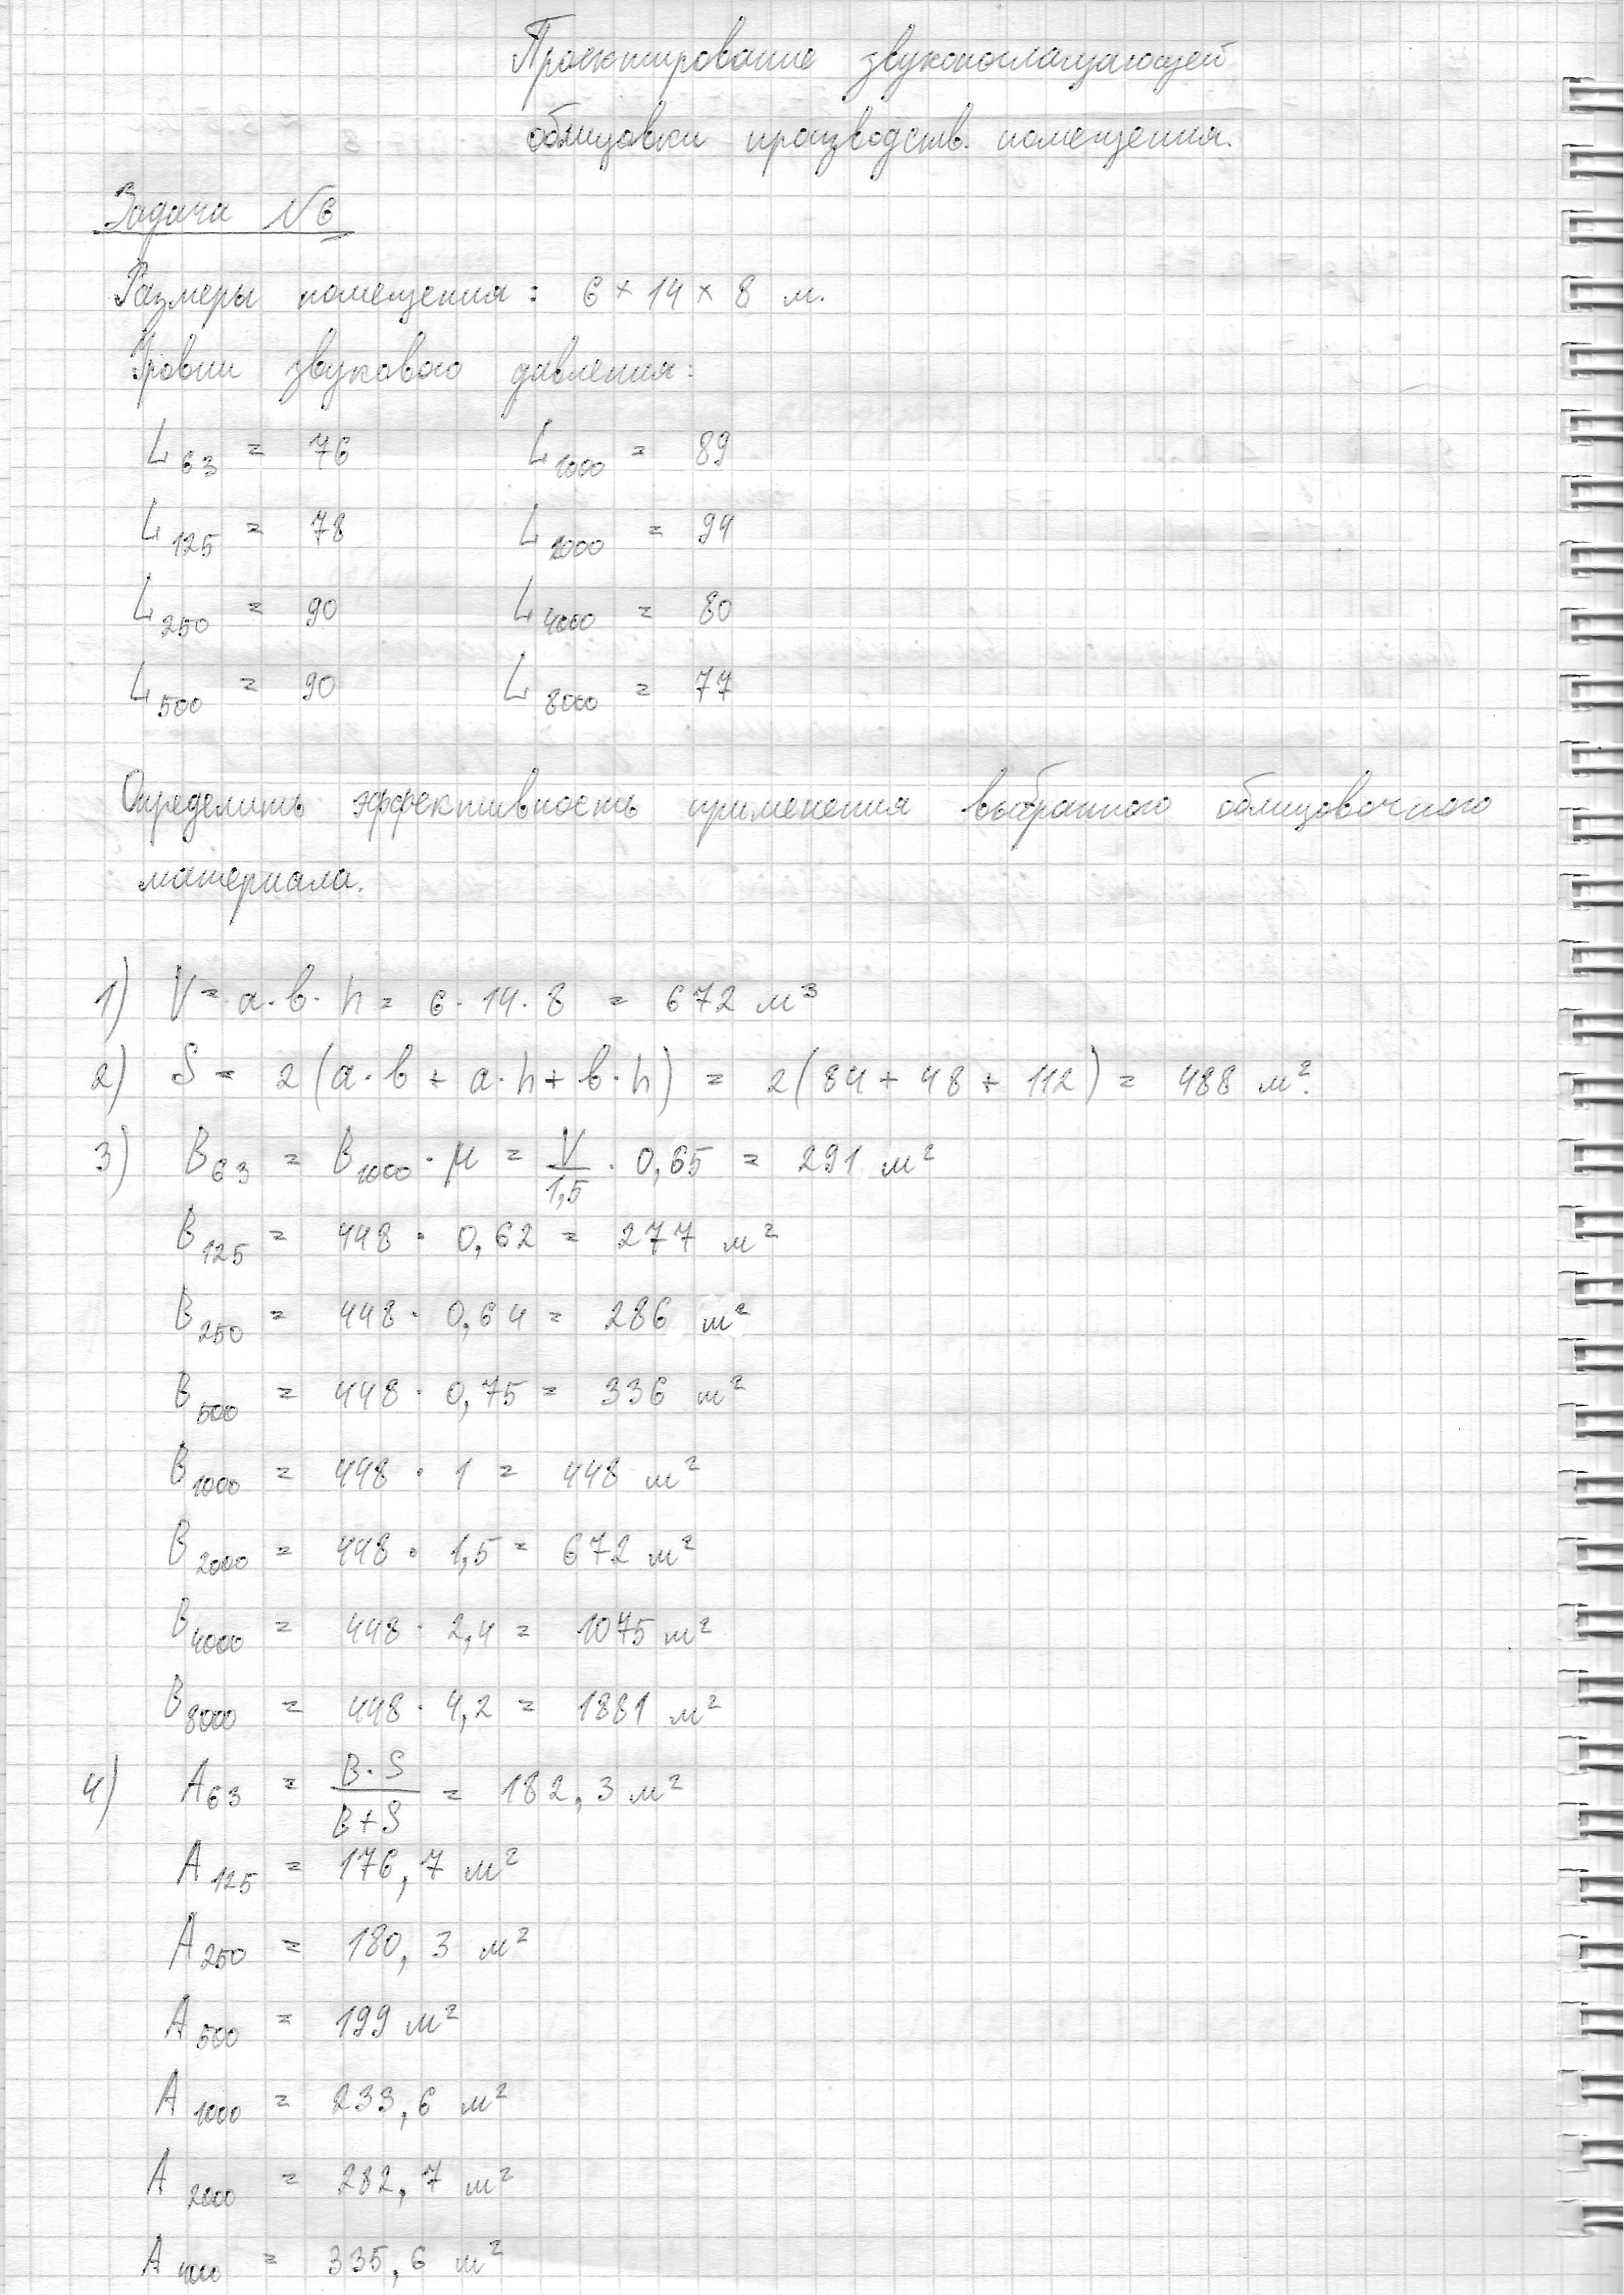 Проектирование звукопоглащающей
облицовки производств. помещения.
Задача №6
Размеры помещения: 6 × 14 × 8 м.
Уровни звукового давления:
L₆₃ = 76 L₁₀₀₀ = 89
L₁₂₅ = 78 L₂₀₀₀ = 94
L₂₅₀ = 90 L₄₀₀₀ = 80
L₅₀₀ = 90 L₈₀₀₀ = 77
Определить эффективность применения выбранного облицовочного
материала.
1) V = a·b·h = 6·14·8 = 672 м³
2) S = 2(a·b + a·h + b·h) = 2(84 + 48 + 112) = 488 м².
3) B₆₃ = B₁₀₀₀ · μ = V/1,5 · 0,65 = 291 м²
B₁₂₅ = 448 · 0,62 = 277 м²
B₂₅₀ = 448 · 0,64 = 286 м²
B₅₀₀ = 448 · 0,75 = 336 м²
B₁₀₀₀ = 448 · 1 = 448 м²
B₂₀₀₀ = 448 · 1,5 = 672 м²
B₄₀₀₀ = 448 · 2,4 = 1075 м²
B₈₀₀₀ = 448 · 4,2 = 1881 м²
4) A₆₃ = B·S/B+S = 182,3 м²
A₁₂₅ = 176,7 м²
A₂₅₀ = 180,3 м²
A₅₀₀ = 199 м²
A₁₀₀₀ = 233,6 м²
A₂₀₀₀ = 282,7 м²
A₄₀₀₀ = 335,6 м²